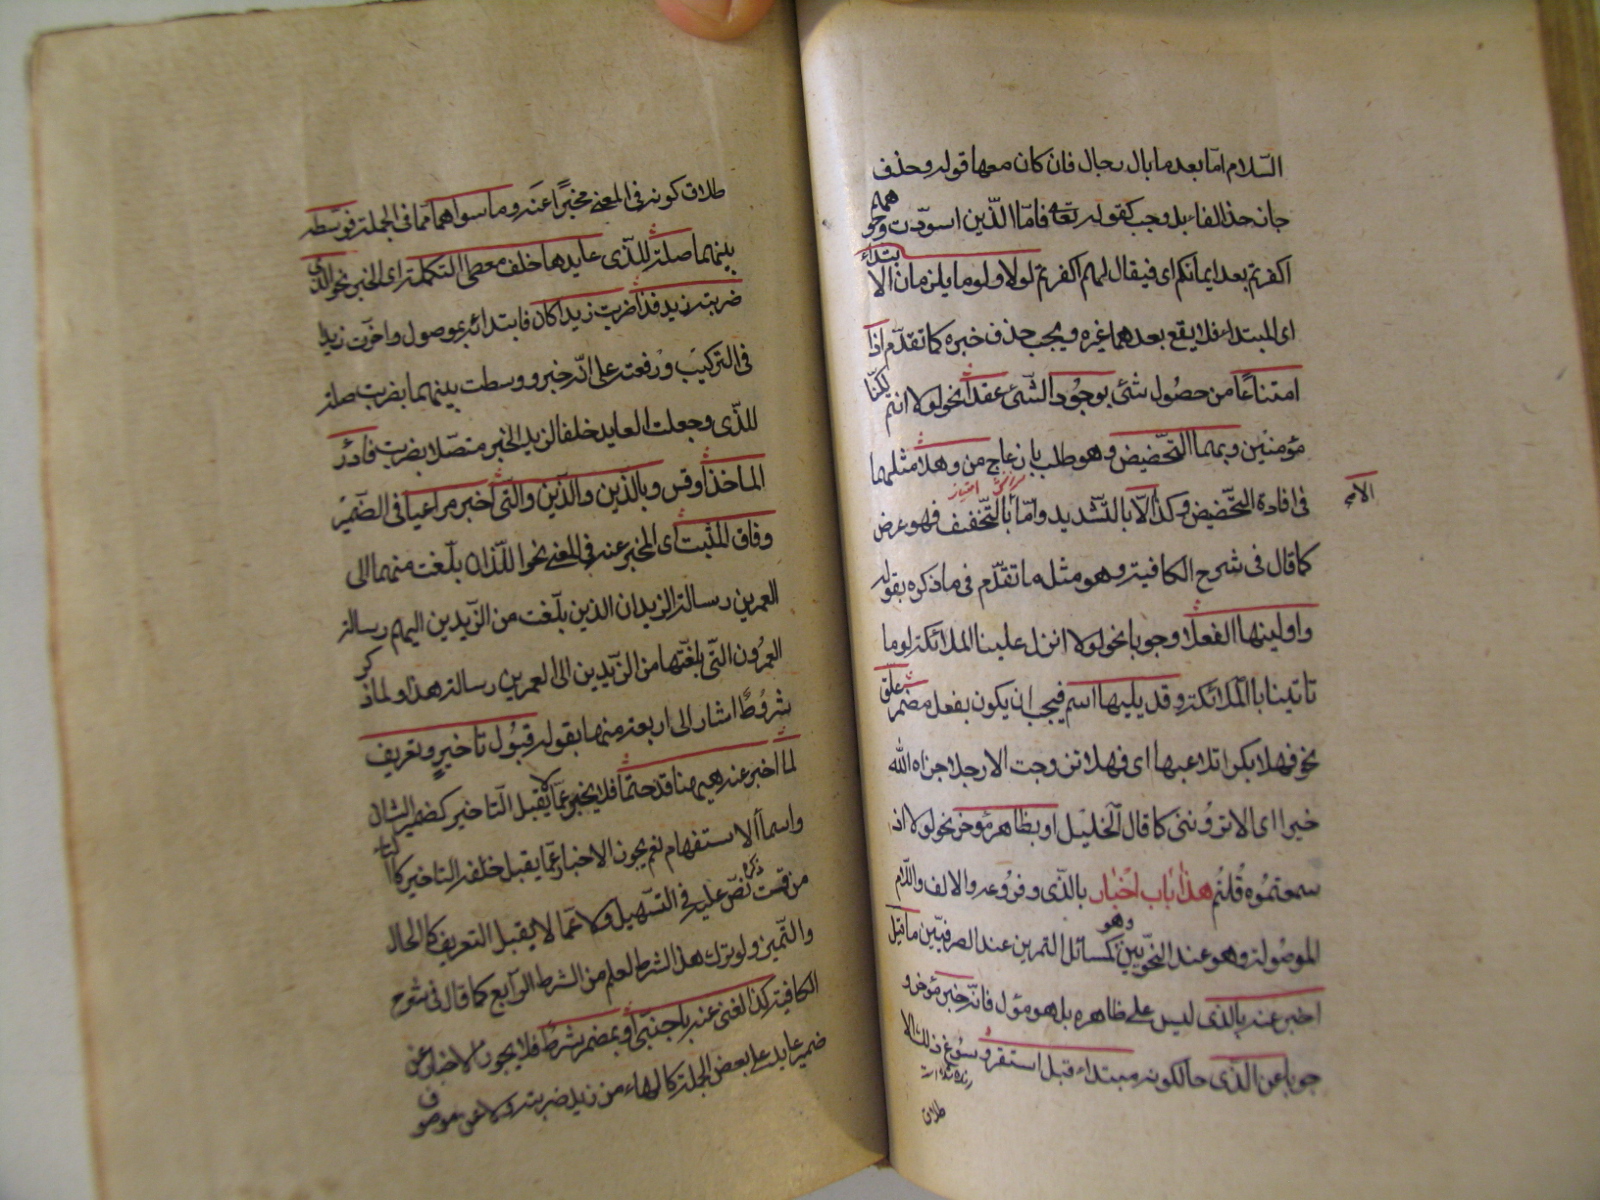 السّلام امّا بعد ما بال رجال فان كان معها قول وحذف
جاز حذف الفا بل وجب كقوله تعه فامّا الّذين اسودّت وجوههم
اكفرتم بعد ايمانكم اى فيقال لهم اكفرتم لولا ولوما يلزمان الابتداء
اى المبتداء فلا يقع بعدهما غيره ويجب حذف خبره كما تقدّم اذا
امتناعًا من حصول شئ بوجود الشّئ عقدا نحو لولا انتم لكنّا
مؤمنين وبهما التّحضيض وهو طلب بازعاج مز وهلّا مثلهما
فى افادة التّحضيض وكذا الّا بالتّشديد وامّا بالتّخفيف فهو عرض
كما قال فى شرح الكافية وهو مثل ما تقدّم فى ما ذكره بقوله
واولينها الفعلا وجوبا نحو لولا انزل علينا الملائكة لوما
تاتينا بالملائكة وقد يليها اسم فيجب ان يكون بفعل مضمر علّق
نحو فهلا بكرا تلاعبها اى فهلا تزوجت الا رجلا جزاه الله
خيرا اى الا تروننى كما قال الخليل او بظاهر مؤخر نحو لولا اذ
سمعتموه قلتم هذا باب اخبار بالّذى وفروعه والالف واللّام
الموصولة وهو عند النّحويين كمسائل التمرين عند الصرفيّين ما قيل
وهو
اخبر عنه بالذى ليس على ظاهره بل هو مؤول فانّه خبر مؤخر و
جوبا عن الذّى حالكونه مبتداء قبل استقر وسوغ ذلك الا
طلاق
طلاق كونه فى المعنى مخبرًا عنه وما سواهما ممّا فى الجملة فوسّطه
بينهما صلة للّذى عايدها خلف معطى التكملة اى الخبر نحو الذّى
ضربته زيد فذا ضربت زيدا كان فابتدائه بموصول واخرت زيدا
فى التركيب ورفعته على انّه خبر ووسطت بينهما بضربت صلة
للذّى وجعلت العايد خلفا لزيد الخبر متصلا بضربت فادر
الماخذا وقس وباللّذين والّذين والّتى اخبر مراعيا فى الضّمير
وفاق المثبت اى المخبر عنه فى المعنى نحو اللّذان بلّغت منهما الى
العمرين رسالة الزيدان الذين بلّغت من الزّيدين اليهم رسالة
العمرون التّى بلغتها من الزّيدين الى العمرين رسالة هذا ولما ذكر
شروطً اشار الى اربعة منها بقوله قبول تاخير وتعريف
لما اخبر عنه ههنا قد حتما فلا يخبر عمّا لا يقبل التاخير كضمير الشان
واسماء الاستفهام نعم يجوز الاخبار عمّا يقبل خلفه التاخير كالتاء
من قمت ذكره نصّ عليه فى التسهيل ولا عمّا لا يقبل التعريف كالحال
والتّميز ولو ترك هذا الشرط لعلم من الشرط الرّابع كما قال فى شرح
الكافية كذا الغنى عنه باجنبىّ او بمضمر شرط فلا يجوز الاخبار عن
ضمير عايد على بعض الجملة كالهاء من زيد ضربته ولا عن موصوف